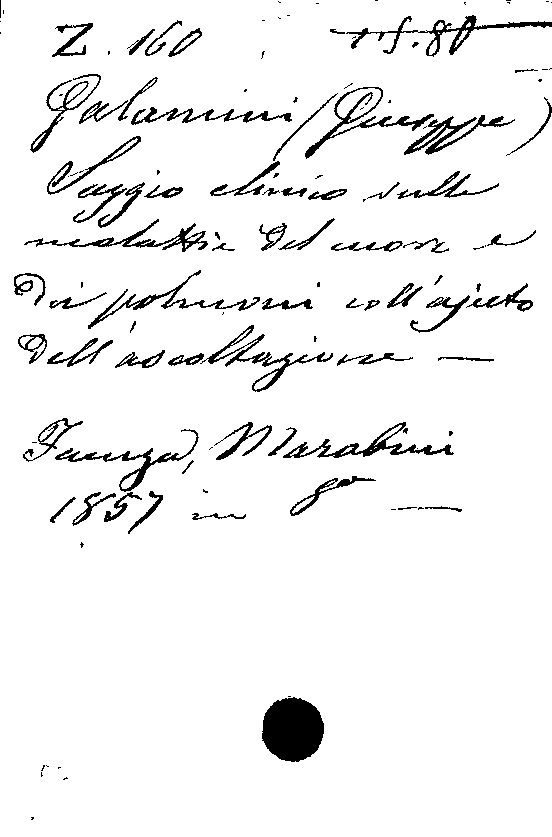 Z. 160 1.5.80
Galamini (Giuseppe)
Saggio clinico sulle
malattie del cuore e
dei polmoni coll'ajuto
dell'ascoltazione —
Faenza, Marabini
1857 in 8º —